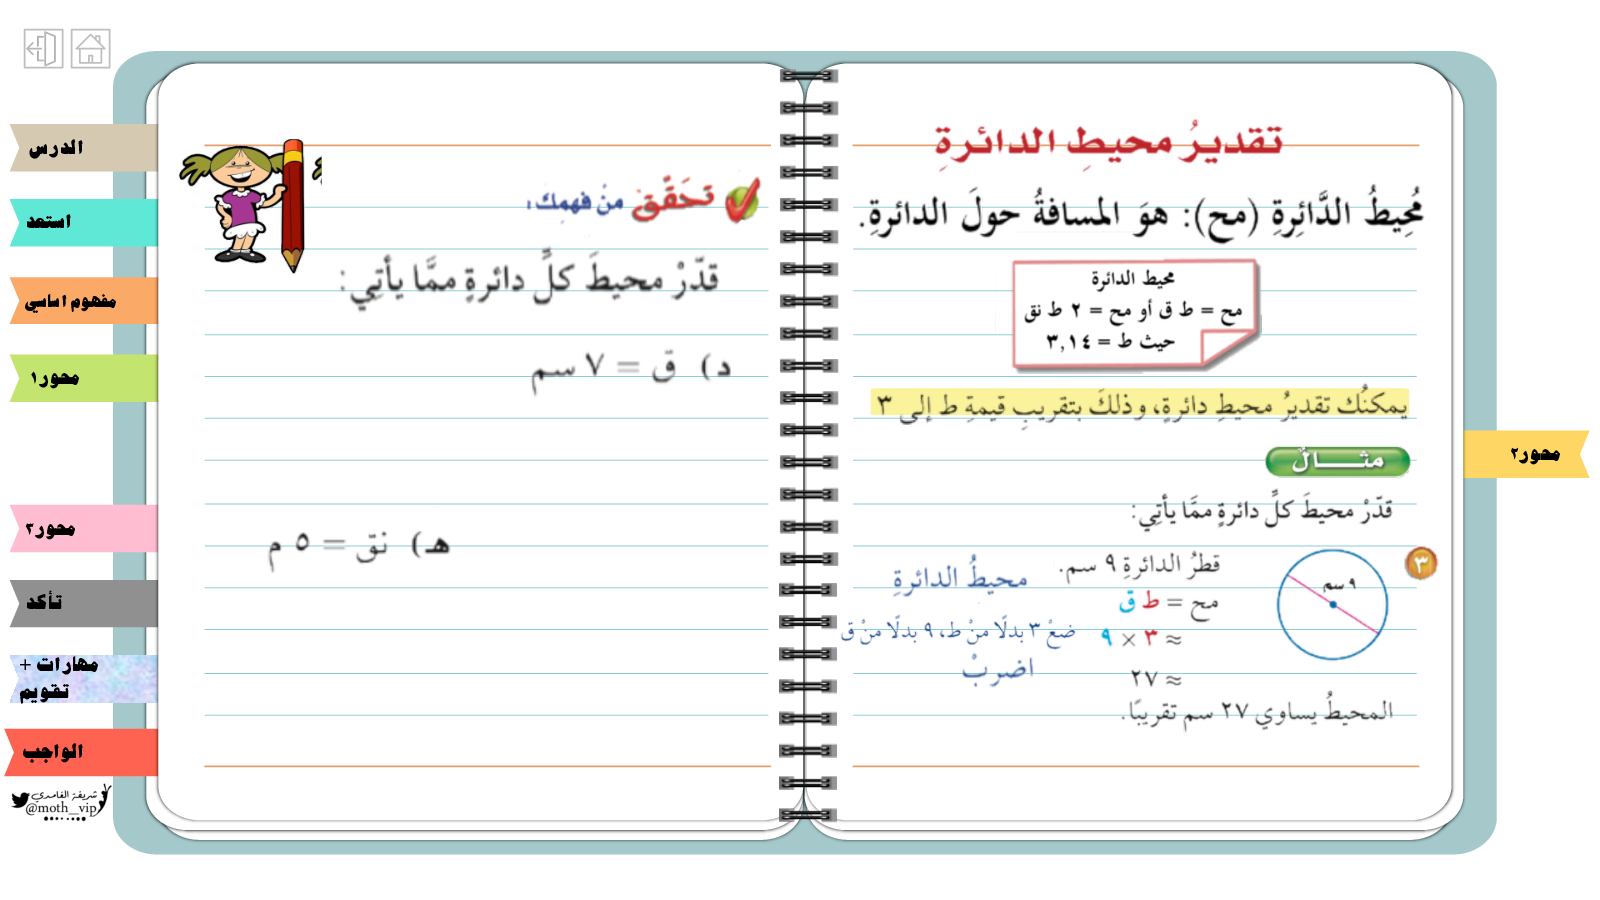 تقديرُ محيطِ الدائرةِ
مُحِيطُ الدَّائِرةِ (مح): هوَ المسافةُ حولَ الدائرةِ.
محيط الدائرة
مح = ط ق أو مح = ٢ ط نق
حيث ط = ٣,١٤
يمكنُك تقديرُ محيطِ دائرةٍ، وذلكَ بتقريبِ قيمةِ ط إلى ٣
مثــــالٌ
قدّرْ محيطَ كلِّ دائرةٍ ممَّا يأتِي:
٣
٩ سم
قطرُ الدائرةِ ٩ سم.
مح = ط ق
محيطُ الدائرةِ
≈ ٣ × ٩
ضعْ ٣ بدلًا منْ ط، ٩ بدلًا منْ ق
≈ ٢٧
اضربْ
المحيطُ يساوي ٢٧ سم تقريبًا.
تحَقَّق منْ فهمِك:
قدّرْ محيطَ كلِّ دائرةٍ ممَّا يأتِي:
د) ق = ٧ سم
هـ) نق = ٥ م
محور٢
الدرس
استعد
مفهوم اساسي
محور١
محور٣
تأكد
مهارات +
تقويم
الواجب
شريفة الغامدي
@moth_vip